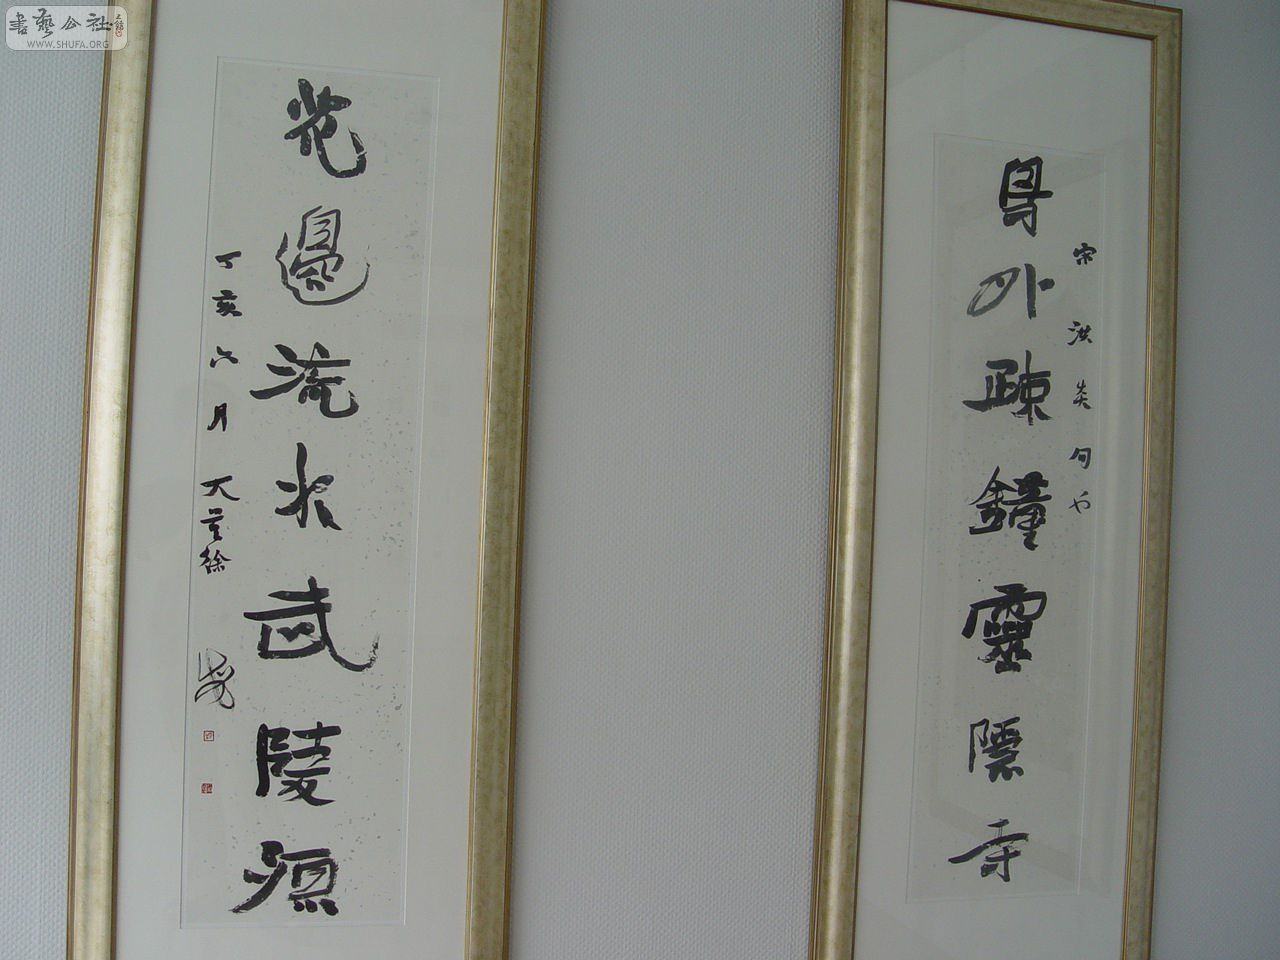 書藝公社
WWW.SHUFA.ORG
宋洪炎句也
身外疎鐘靈隱寺
花邊流水武陵源
丁亥六月大荒徐